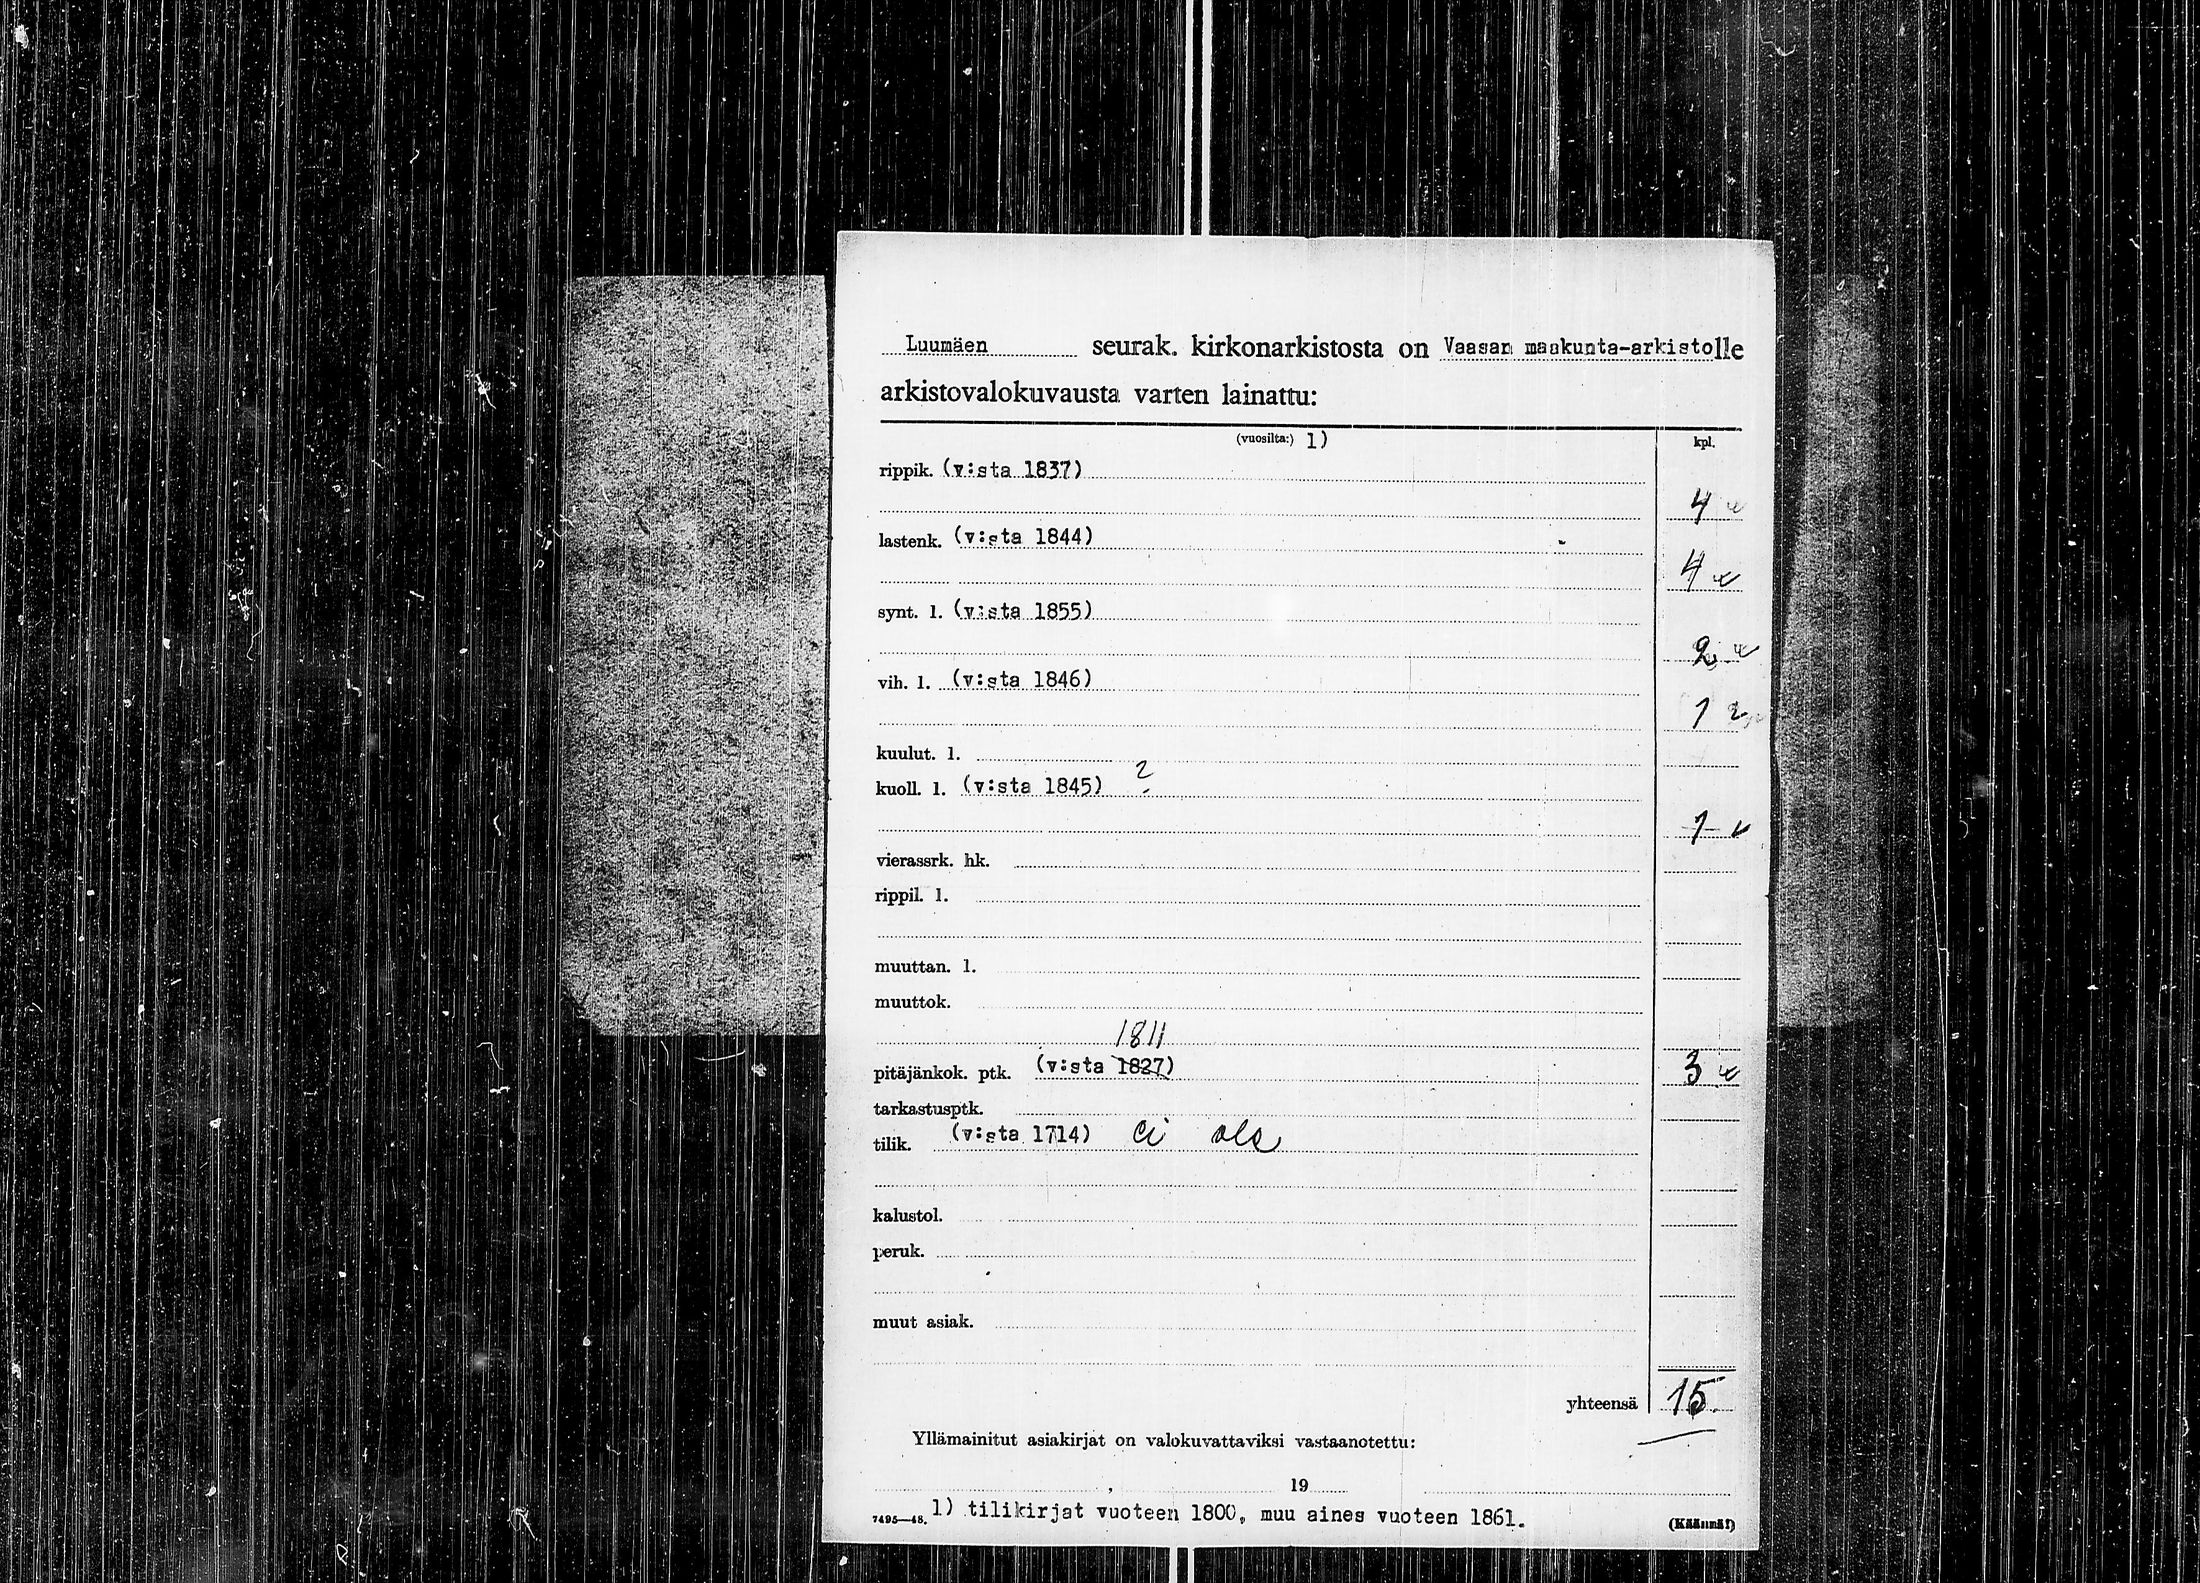 Luumäen seurak. kirkonarkistosta on Vaasan maakunta-arkistolle
arkistovalokuvausta varten lainattu:
(vuosilta:) 1) kpl.
rippik. (v:sta 1837)
4
lastenk. (v:sta 1844)
4
synt. l. (v:sta 1855)
2
vih. l. (v:sta 1846)
1
kuulut. l.
kuoll. l. (v:sta 1845) ?
1
vierassrk. hk.
rippil. l.
muuttan. l.
muuttok.
1811
pitäjänkok. ptk. (v:sta 1827) 3
tarkastusptk.
tilik. (v:sta 1714) ei ole
kalustol.
peruk.
muut asiak.
yhteensä 15.
Yllämainitut asiakirjat on valokuvattaviksi vastaanotettu:
, 19
7495—48. 1) tilikirjat vuoteen 1800, muu aines vuoteen 1861. (Käännä!)